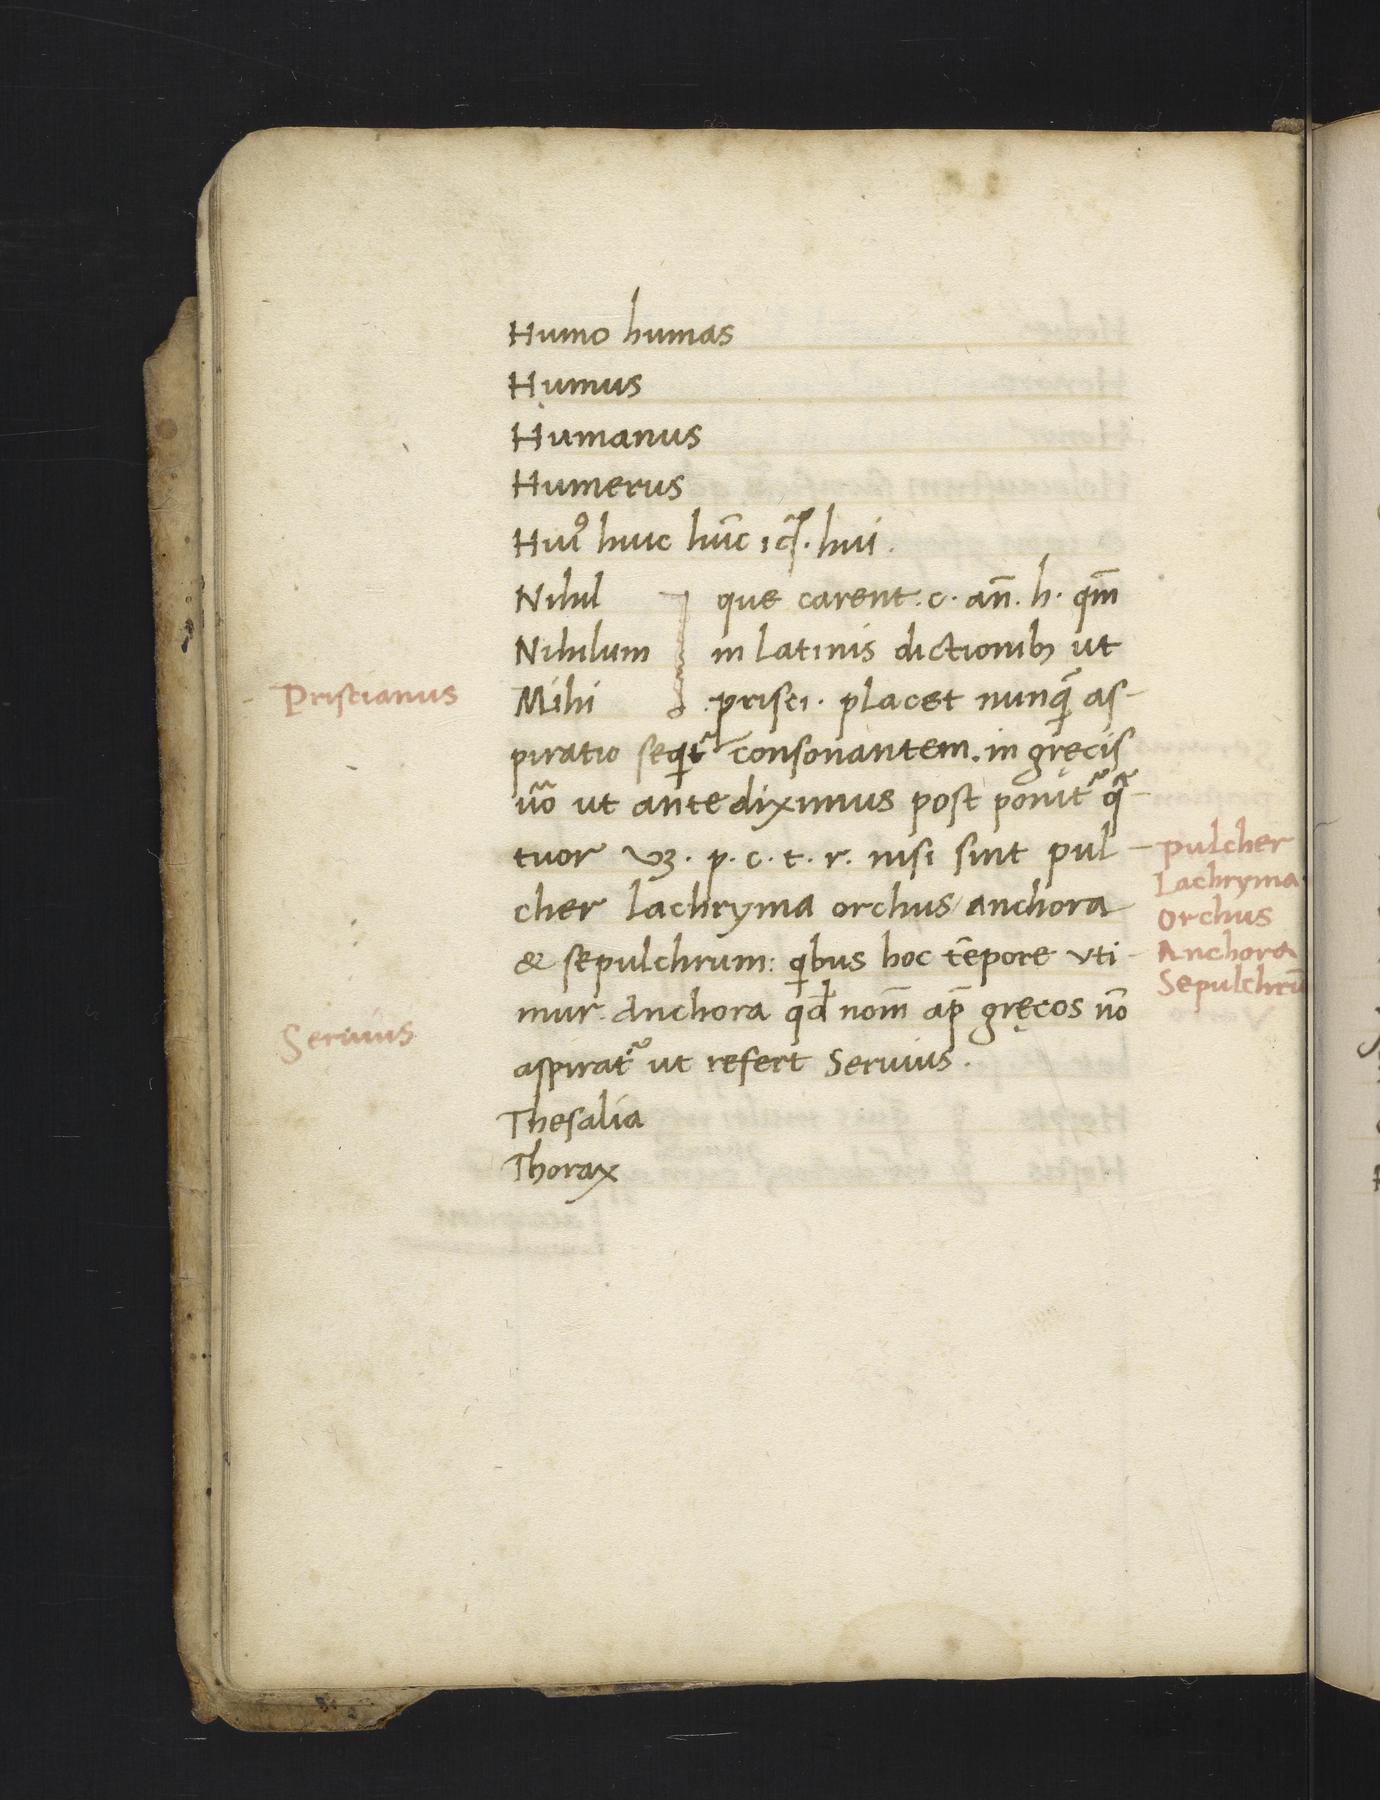 Humo humas
Humus
Humanus
Humerus
Huiꝰ huic hūc hui.
Nihil que carent .c. añ. h. qm̄
Nihilum in latinis dictionibꝫ ut
Priscianus Mihi prisci. placet nunq̄ as-
piratio seqͥt᷑ consonantem. in gręcis
u͞o ut ante diximus post ponit᷑ qᷓ-
tuor vꝫ. p. c. t. r. nisi sint pul
cher lachryma orchus anchora
& sepulchrum: qͥbus hoc tēpore vti
mur. Anchora qđ nom̄ ap̄ gręcos nō
Seruius aspirat᷑ ut refert Seruius.
Thesalia
Thorax
pulcher
Lachryma
Orchus
Anchora
Sepulchrū